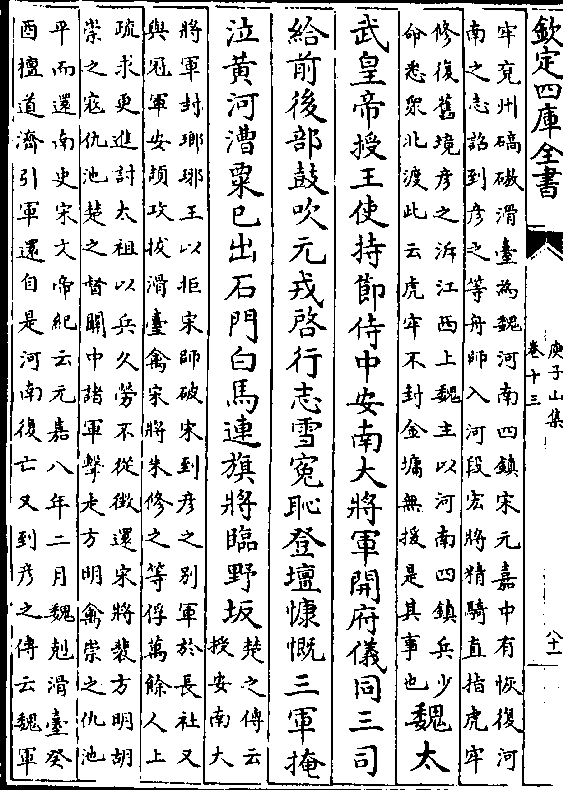 欽定四庫全書
庚子山集
卷十三
八十一
牢兖州碻磝滑臺為魏河南四鎮宋元嘉中有恢復河
南之志詔到彥之等舟師入河段宏將精騎直指虎牢
修復舊境彥之泝江西上魏主以河南四鎮兵少
命悉衆北渡此云虎牢不封金墉無援是其事也
魏太
武皇帝授王使持節侍中安南大將軍開府儀同三司
給前後部鼓吹元戎啓行志雪寃恥登壇慷慨三軍掩
泣黃河漕粟已出石門白馬連旗將臨野坂
楚之傳云
授安南大
將軍封瑯琊王以拒宋師破宋到彥之别軍於長社又
與冠軍安頡攻拔滑臺禽宋將朱修之等俘萬餘人上
疏求更進討太祖以兵久勞不從徵還宋將裴方明胡
崇之寇仇池楚之督關中諸軍擊走方明禽崇之仇池
平而還南史宋文帝紀云元嘉八年二月魏剋滑臺癸
酉檀道濟引軍還自是河南復亡又到彥之傳云魏軍